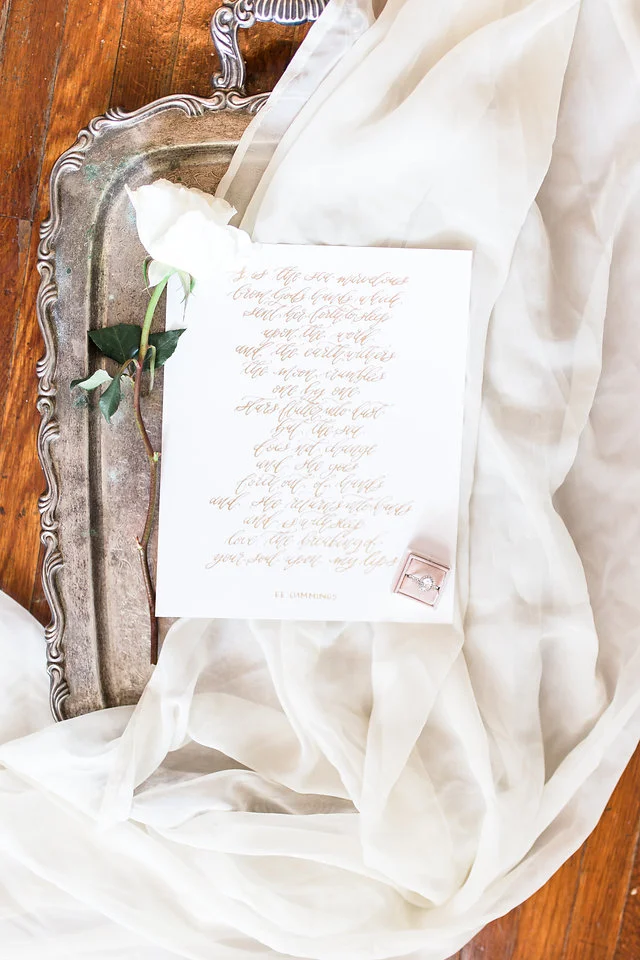 is the sea marvelous
from god's hands which
sent her forth to sleep
upon the world
and the earth withers
the moon crumbles
one by one
stars flutter into dust
but the sea
does not change
and she goes
forth out of hands
and she returns into hands
and is with sleep
love the breaking of
your soul upon my lips
EE CUMMINGS